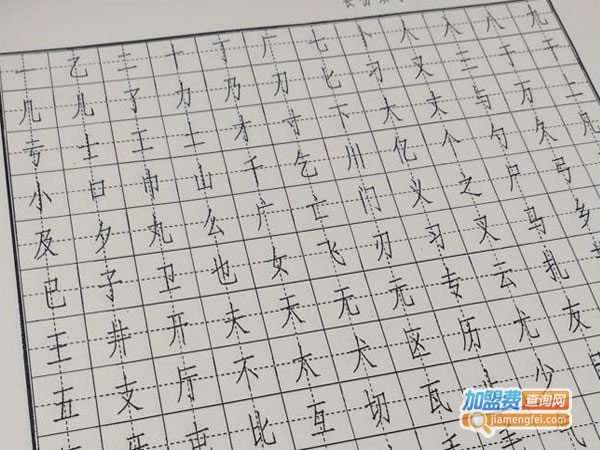 一乙二十丁厂七卜人入八九
几儿了力乃刀匕刁又三于干
亏士工土才寸下大丈与万上
小口巾山千乞川亿个勺久凡
及夕丸么广亡门义之尸弓
巴子卫也女飞刃习叉马乡
王井开夫天元无专云扎
五支厅不太犬区历尤友
比互切瓦少
加盟费查询网
jiamengfei.com